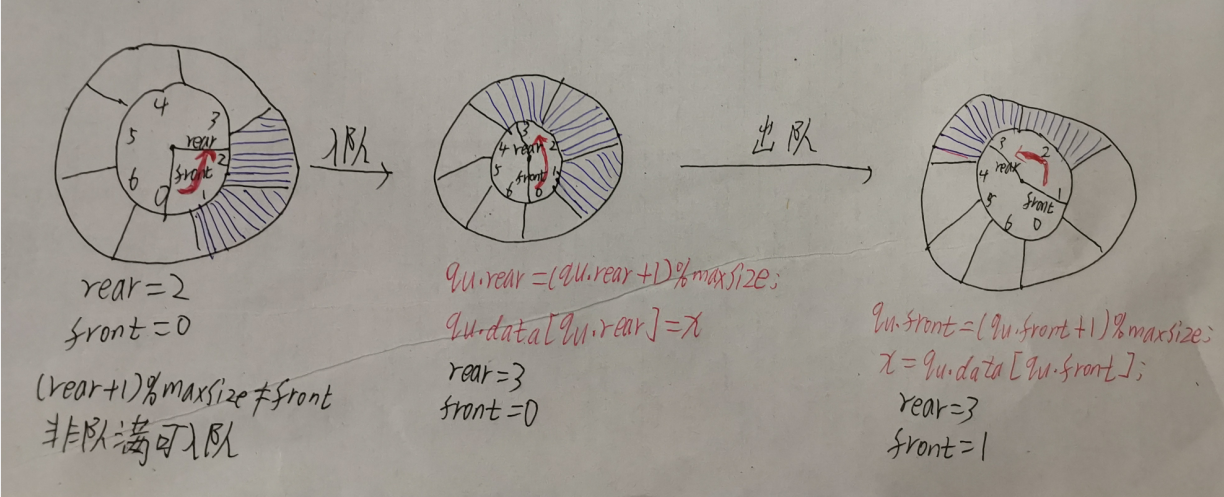 4
3
5
rear
2
6
front
0
1
入队
3
4 rear 2
5
front
1
6
0
出队
3
2
rear
4
1
5
front
6
0
rear=2
front=0
(rear+1)%maxsize≠front
非队满可入队
qu.rear=(qu.rear+1)%maxsize;
qu.data[qu.rear]=x
rear=3
front=0
qu.front=(qu.front+1)%maxsize;
x=qu.data[qu.front];
rear=3
front=1